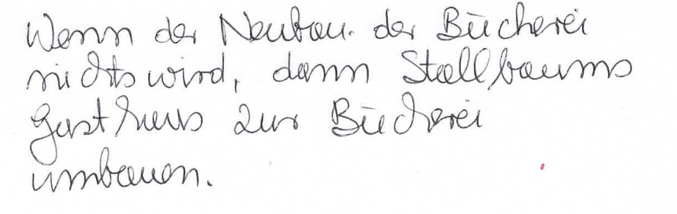 Wenn der Neubau der Bücherei
nichts wird, dann Stallbaums
Gasthaus zur Bücherei
umbauen.